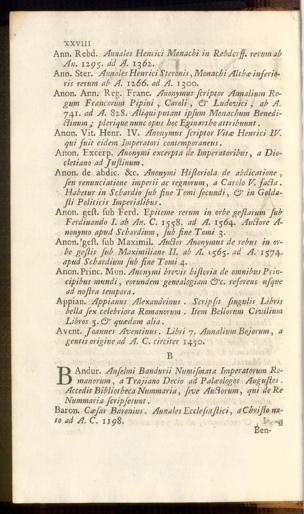 XXVIII
Ann. Rebd. Annales Henrici Monachi in Rebdorff. rerum ab
An. 1295. ad A. 1362.
Ann. Ster. Annales Henrici Steronis, Monachi Althæ inferio-
ris rerum ab A. 1266. ad A. 1300.
Anon. Ann. Reg. Franc. Anonymus scriptor Annalium Re-
gum Francorum Pipini, Caroli, & Ludovici, ab A.
741. ad A. 828. Aliqui putant ipsum Monachum Benedi-
ctinum; plerique nunc opus hoc Eginartho attribunt.
Anon. Vit. Henr. IV. Anonymus scriptor Vitæ Henrici IV.
qui fuit eidem Imperatori contemporaneus.
Anon. Excerp. Anonymi excerpta de Imperatoribus, a Dio-
cletiano ad Justinum.
Anon. de abdic. &c. Anonymi Historiola de abdicatione,
seu renunciatione imperii ac regnorum, a Carolo V. facta.
Habetur in Schardio sub fine Tomi secundi, & in Golda-
sti Politicis Imperialibus.
Anon. gest. sub Ferd. Epitome rerum in orbe gestarum sub
Ferdinando I. ab An. C. 1558. ad A. 1564. Auctore A-
nonymo apud Schardium, sub fine Tomi 3.
Anon. gest. sub Maximil. Auctor Anonymus de rebus in or-
be gestis sub Maximiliano II. ab A. 1565. ad A. 1574.
apud Schardium sub fine Tomi 4.
Anon. Princ. Mun. Anonymi brevis historia de omnibus Prin-
cipibus mundi, eorundem genealogiam &c. referens usque
ad nostra tempora.
Appian. Appianus Alexandrinus. Scripsit singulis Libris
bella sex celebriora Romanorum. Item Bellorum Civilium
Libros 5. & quædam alia.
Avent. Joannes Aventinus. Libri 7. Annalium Bojorum, a
gentis origine ad A. C. circiter 1450.
B
Bandur. Anselmi Bandurii Numismata Imperatorum Ro-
manorum, a Trajano Decio ad Palæologos Augustos.
Accedit Bibliotheca Nummaria, sive Auctorum, qui de Re
Nummaria scripserunt.
Baron. Cæsar Baronius. Annales Ecclesiastici, a Christo na-
to ad A. C. 1198.
Ben-